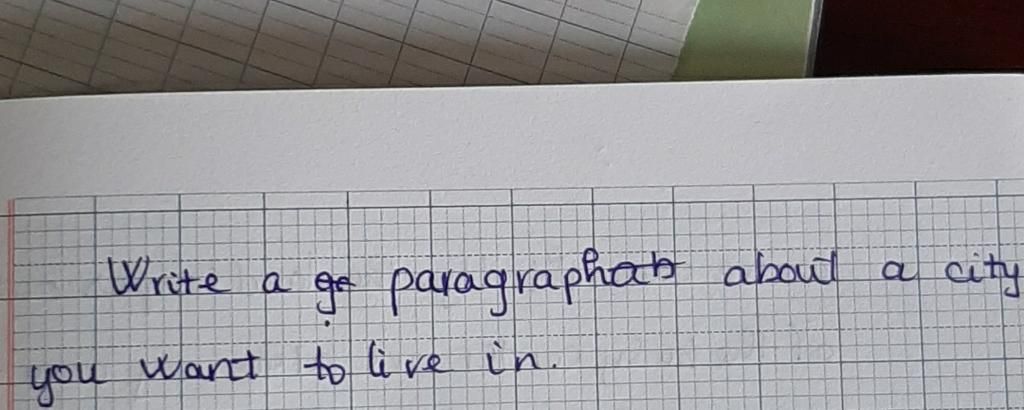 Write a paragraph about a city
you want to live in.